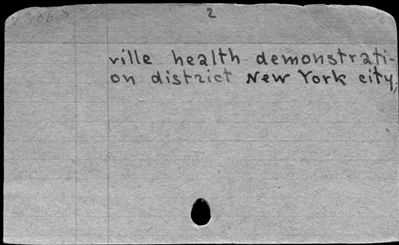 2
ville health demonstrati-
on district New York city,